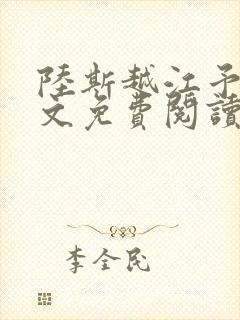 陸斯越江予
文免費閱讀
李全民